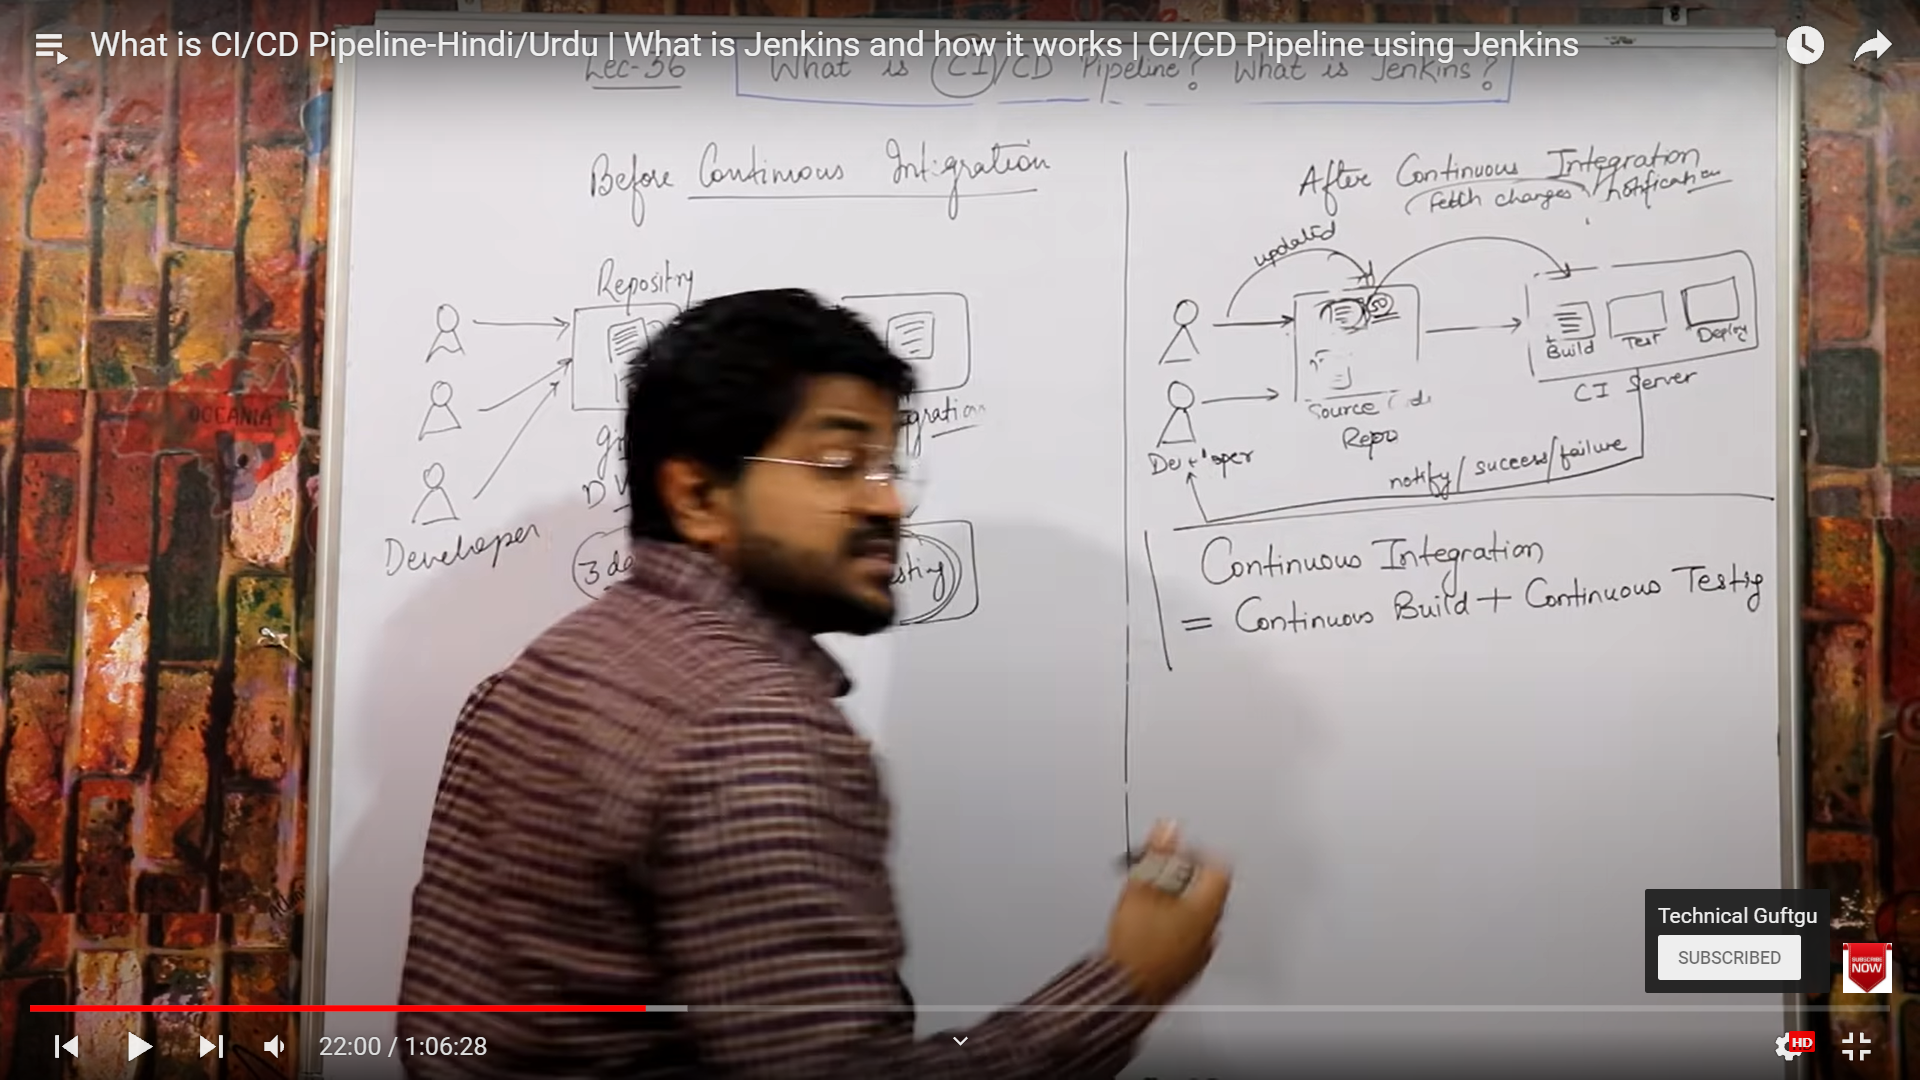 What is CI/CD Pipeline-Hindi/Urdu | What is Jenkins and how it works | CI/CD Pipeline using Jenkins
Lec-56 What is CI/CD Pipeline? What is Jenkins?
Before Continuous Intigration
Repositry
Developer
3
After Continuous Integration
Fetch changes / notification
updated
50
Build Test Deploy
CI Server
Source
Repo
notify/ success/failure
Continuous Integration
= Continuous Build + Continuous Testig
OCEANIA
Technical Guftgu
SUBSCRIBED
SUBSCRIBE
NOW
22:00 / 1:06:28
HD